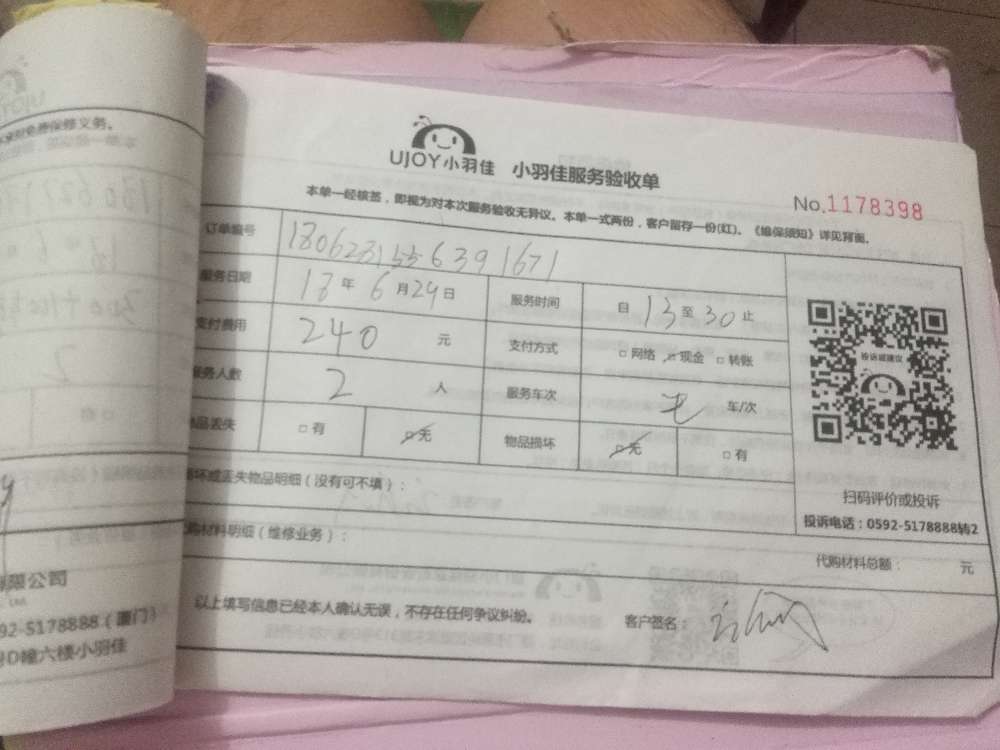 UJOY小羽佳 小羽佳服务验收单
No.1178398
本单一经核签，即视为对本次服务验收无异议。本单一式两份，客户留存一份(红)。《维保须知》详见背面。
订单编号 1806231556391671
服务日期 18年6月24日 服务时间 自13至30止
支付费用 240元 支付方式 □网络 □现金 □转账
服务人数 2人 服务车次 无 车/次
物品丢失 □有 □无 物品损坏 □无 □有
损坏或丢失物品明细（没有可不填）：
代购材料明细（维修业务）：
代购材料总额： 元
投诉或建议
扫码评价或投诉
投诉电话：0592-5178888转2
以上填写信息已经本人确认无误，不存在任何争议纠纷。 客户签名：
免费保修义务。
有限公司
92-5178888（厦门）
D幢六楼小羽佳